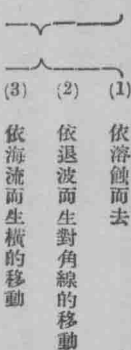 (1) 依溶蝕而去
(2) 依退波而生對角線的移動
(3) 依海流而生橫的移動